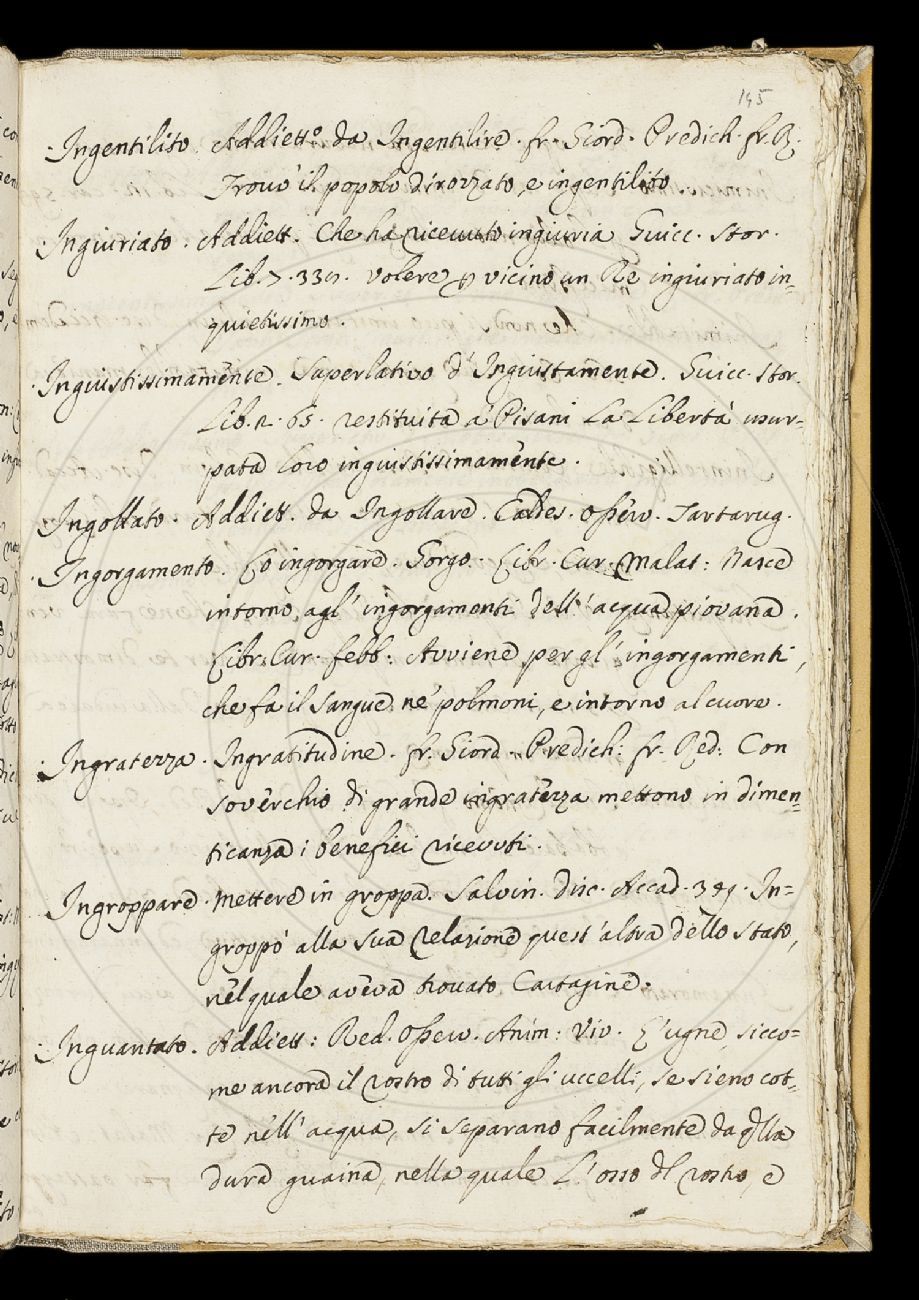 195
Ingentilito. Addietto. da Ingentilire. fr. Giord. Predich. fr. R:
Trovò il popolo dirozzato, e ingentilito
Ingiuriato. Addiett. Che ha ricevuto ingiuria Guicc. Stor.
Lib. 7. 339. volere p vicino un Re ingiuriato in=
quietissimo.
Ingiustissimamente. Superlativo d'Ingiustamente. Guicc. Stor.
Lib. 2. 65. restituita a' Pisani La Libertà usur-
pata loro ingiustissimamente.
Ingollato. Addiett. da Ingollare. Osserv. Tartarug.
Ingorgamento. Lo ingorgare. Gorgo. Libr. Cur. Malat: Nasce
intorno agl' ingorgamenti dell' acqua piovana.
Libr. Cur. febb: Avviene per gl' ingorgamenti,
che fa il sangue ne' polmoni, e intorno al cuore.
Ingratezza. Ingratitudine. fr. Giord. Predich: fr. Red: Con
soverchio di grande ingratezza mettono in dimen=
ticanza i benefici ricevuti.
Ingroppare. Mettere in groppa. Salvin. disc. Accad. In=
groppò alla sua relazione quest' altra dello stato,
nel quale aveva trovato Cartagine.
Inguantato. Addiett: Red. Osserv. Anim: Viv. L'ugne, sicco=
me ancora il rostro di tutti gli uccelli, se sieno cot-
te nell' acqua, si separano facilmente da qlla
dura guaina, nella quale L'osso dl rostro, e